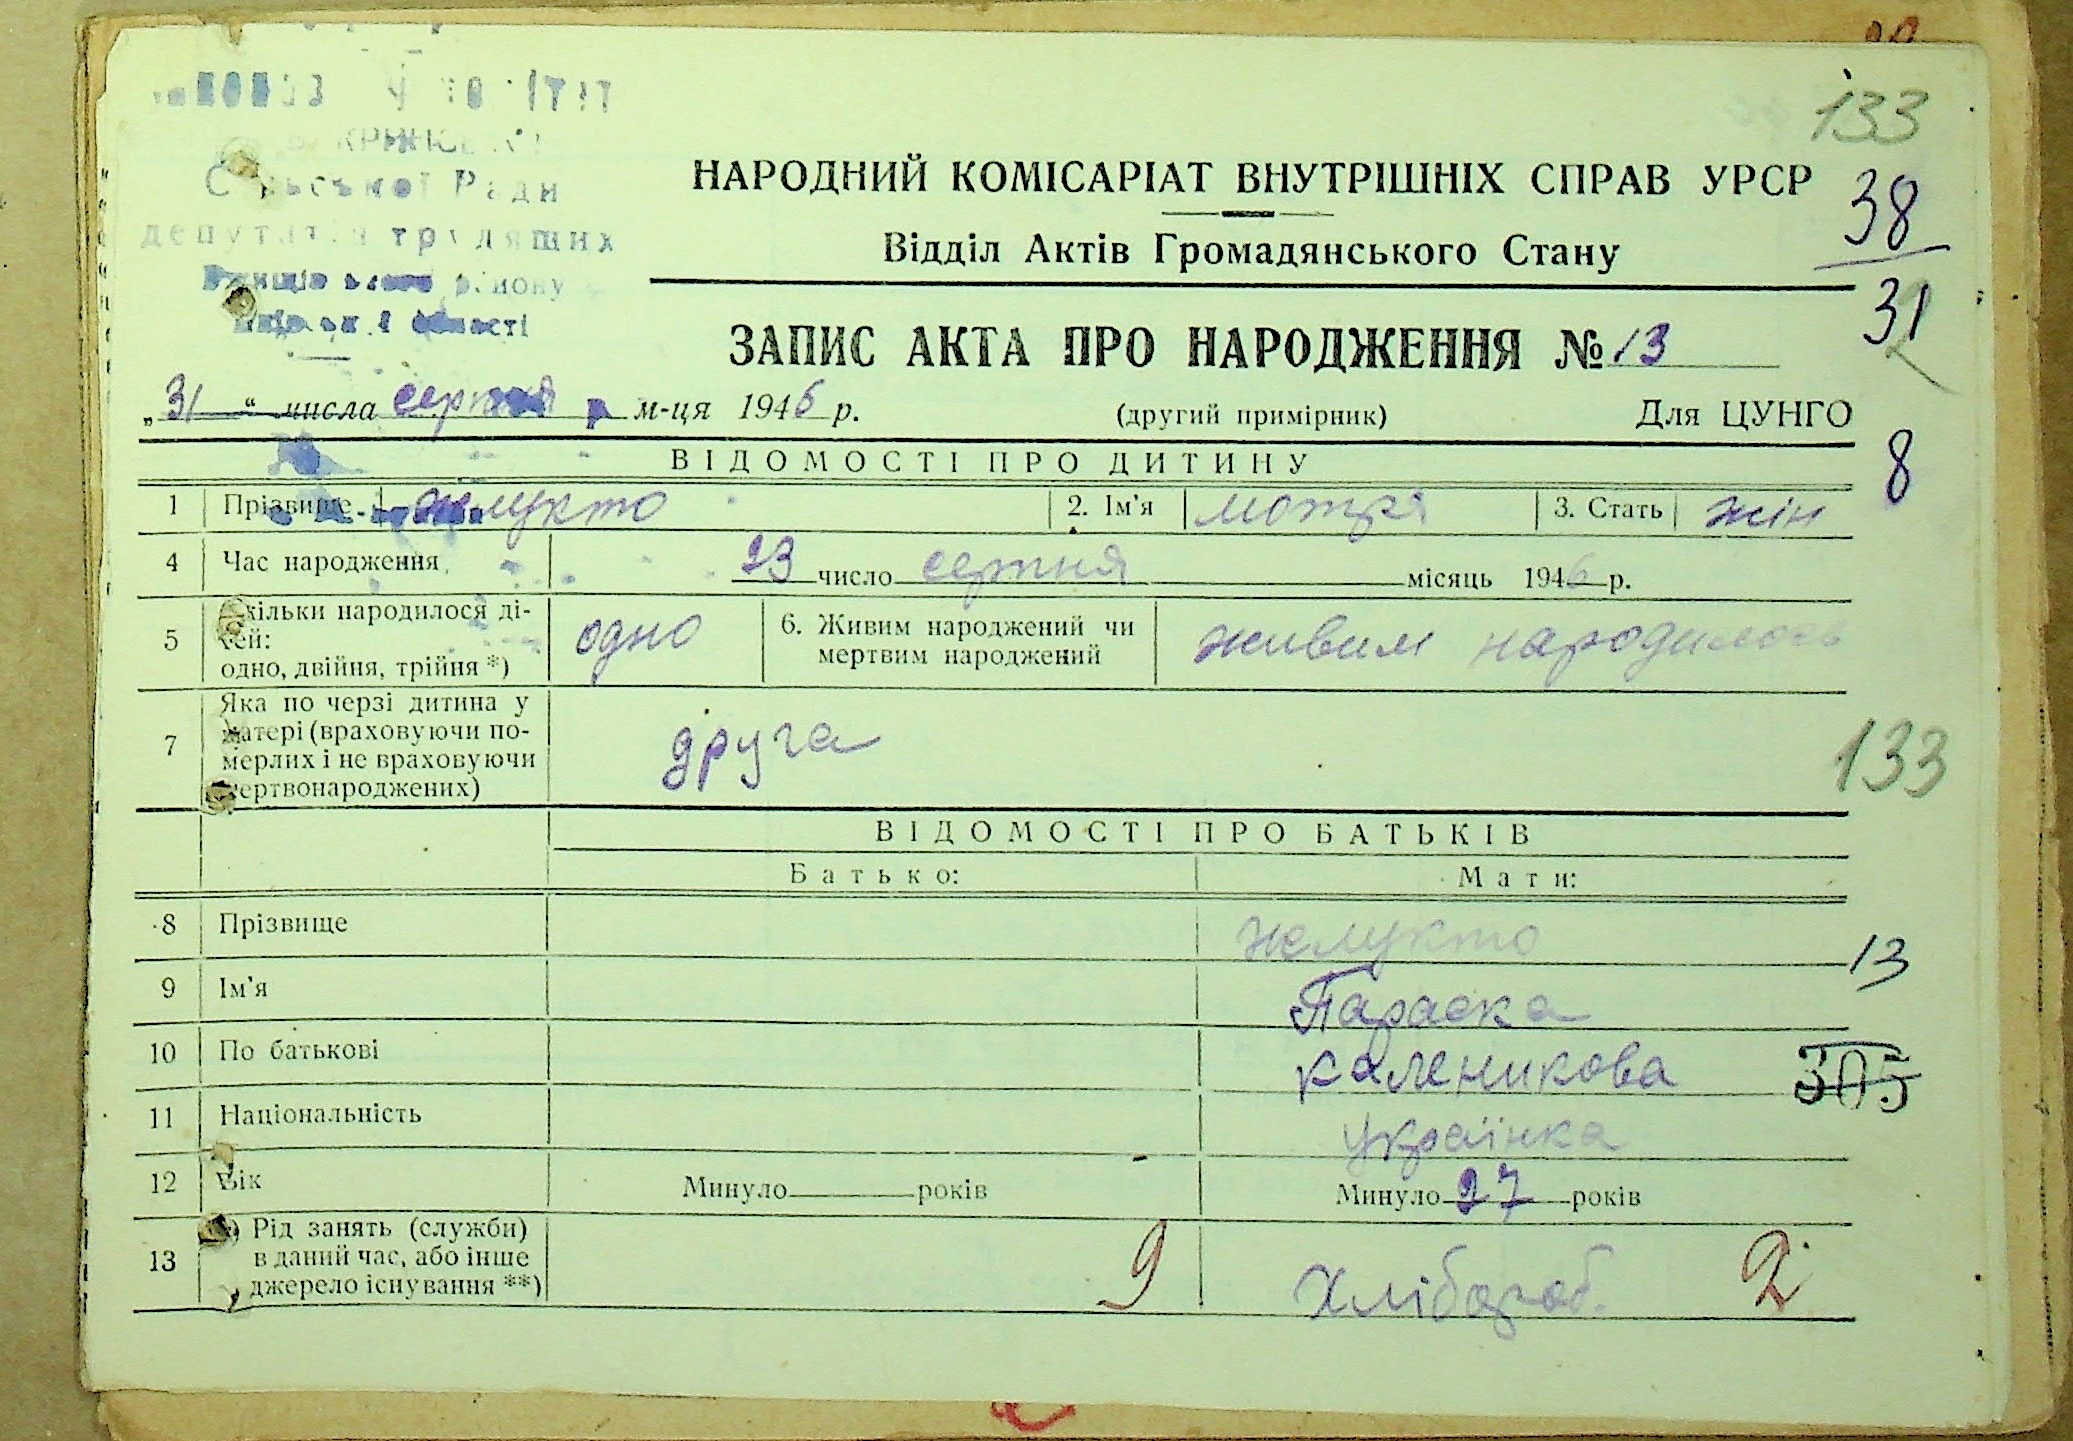 133
НАРОДНИЙ КОМІСАРІАТ ВНУТРІШНІХ СПРАВ УРСР
38
Відділ Актів Громадянського Стану
31
ЗАПИС АКТА ПРО НАРОДЖЕННЯ № 13
Ради
депутатів трудящих
району
області
„31“ числа серпня м-ця 1946 р. (другий примірник) Для ЦУНГО
8
ВІДОМОСТІ ПРО ДИТИНУ
1 Прізвище Жмукто 2. Ім'я Мотря 3. Стать жін
4 Час народження 23 число серпня місяць 1946 р.
5 Скільки народилося ді-
тей:
одно, двійня, трійня *) одно 6. Живим народжений чи
мертвим народжений живим народилось
7 Яка по черзі дитина у
матері (враховуючи по-
мерлих і не враховуючи
мертвонароджених) друга
133
ВІДОМОСТІ ПРО БАТЬКІВ
Батько: Мати:
8 Прізвище
13
9 Ім'я Параска
10 По батькові каленикова
305
11 Національність українка
12 Вік Минуло років Минуло 27 років
13 Рід занять (служби)
в даний час, або інше
джерело існування **) 9 хлібороб. 2